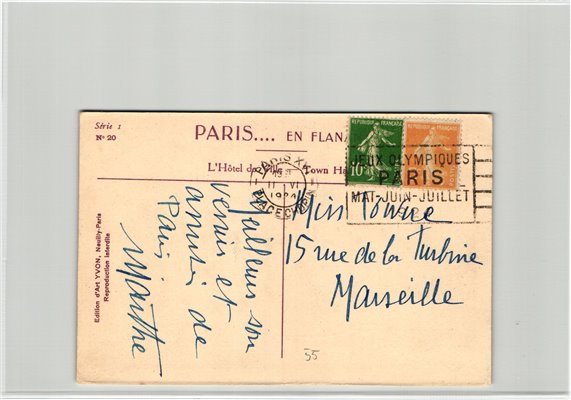 Série 1
Nº 20
PARIS.... EN FLAN
L'Hôtel de Ville - Town Ha
REPUBLIQUE FRANÇAISE
10
REPUBLIQUE FRANÇAISE
PARIS XV
11 VI
JEUX OLYMPIQUES
PARIS
MAI-JUIN-JUILLET
Meilleurs sou
venirs et
amitiés de
Paris
Miss
15 rue de la Turbine
Marseille
Edition d'Art YVON, Neuilly-Paris
Reproduction interdite
55